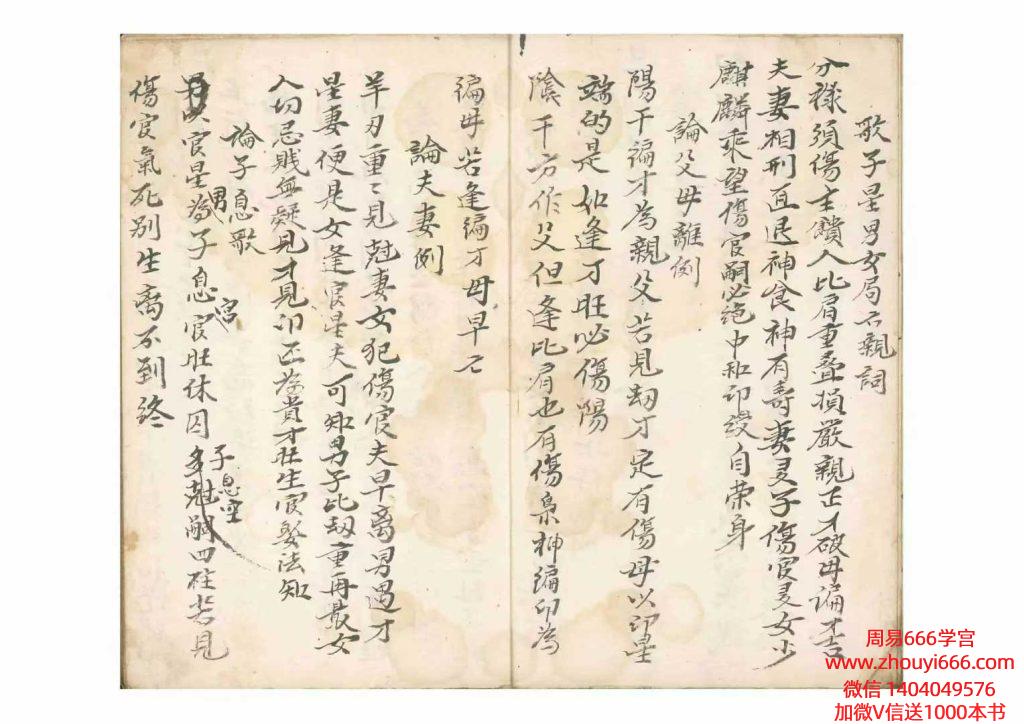 歌子星男女局不親詞
分祿須傷主饋人比肩重叠損嚴親正才破母
夫妻相刑直退神食神有壽妻灵子傷官灵女少
麒麟乘望傷官嗣必絕中和印綬自荣身
論父母離例
陽干遍才為親父若見劫才定有傷母以印星
端的是如逢才旺必傷陽
陰干方作父但逢比肩也有傷梟神编印為
编母若逢编才母早亡
論夫妻例
羊刃重〻見尅妻女犯傷官夫早离男遇才
星妻便是女逢官星夫可知男子比劫重再最女
人切忌贱無疑見才見印正為貴才旺生官娶法知
論子息歌
男以官星為子息官旺休囚多尅嗣四柱若見
男
宮
子息空
傷官氣死别生离不到終
周易666学宫
www.zhouyi666.com
微信 1404049576
加微V信送1000本书